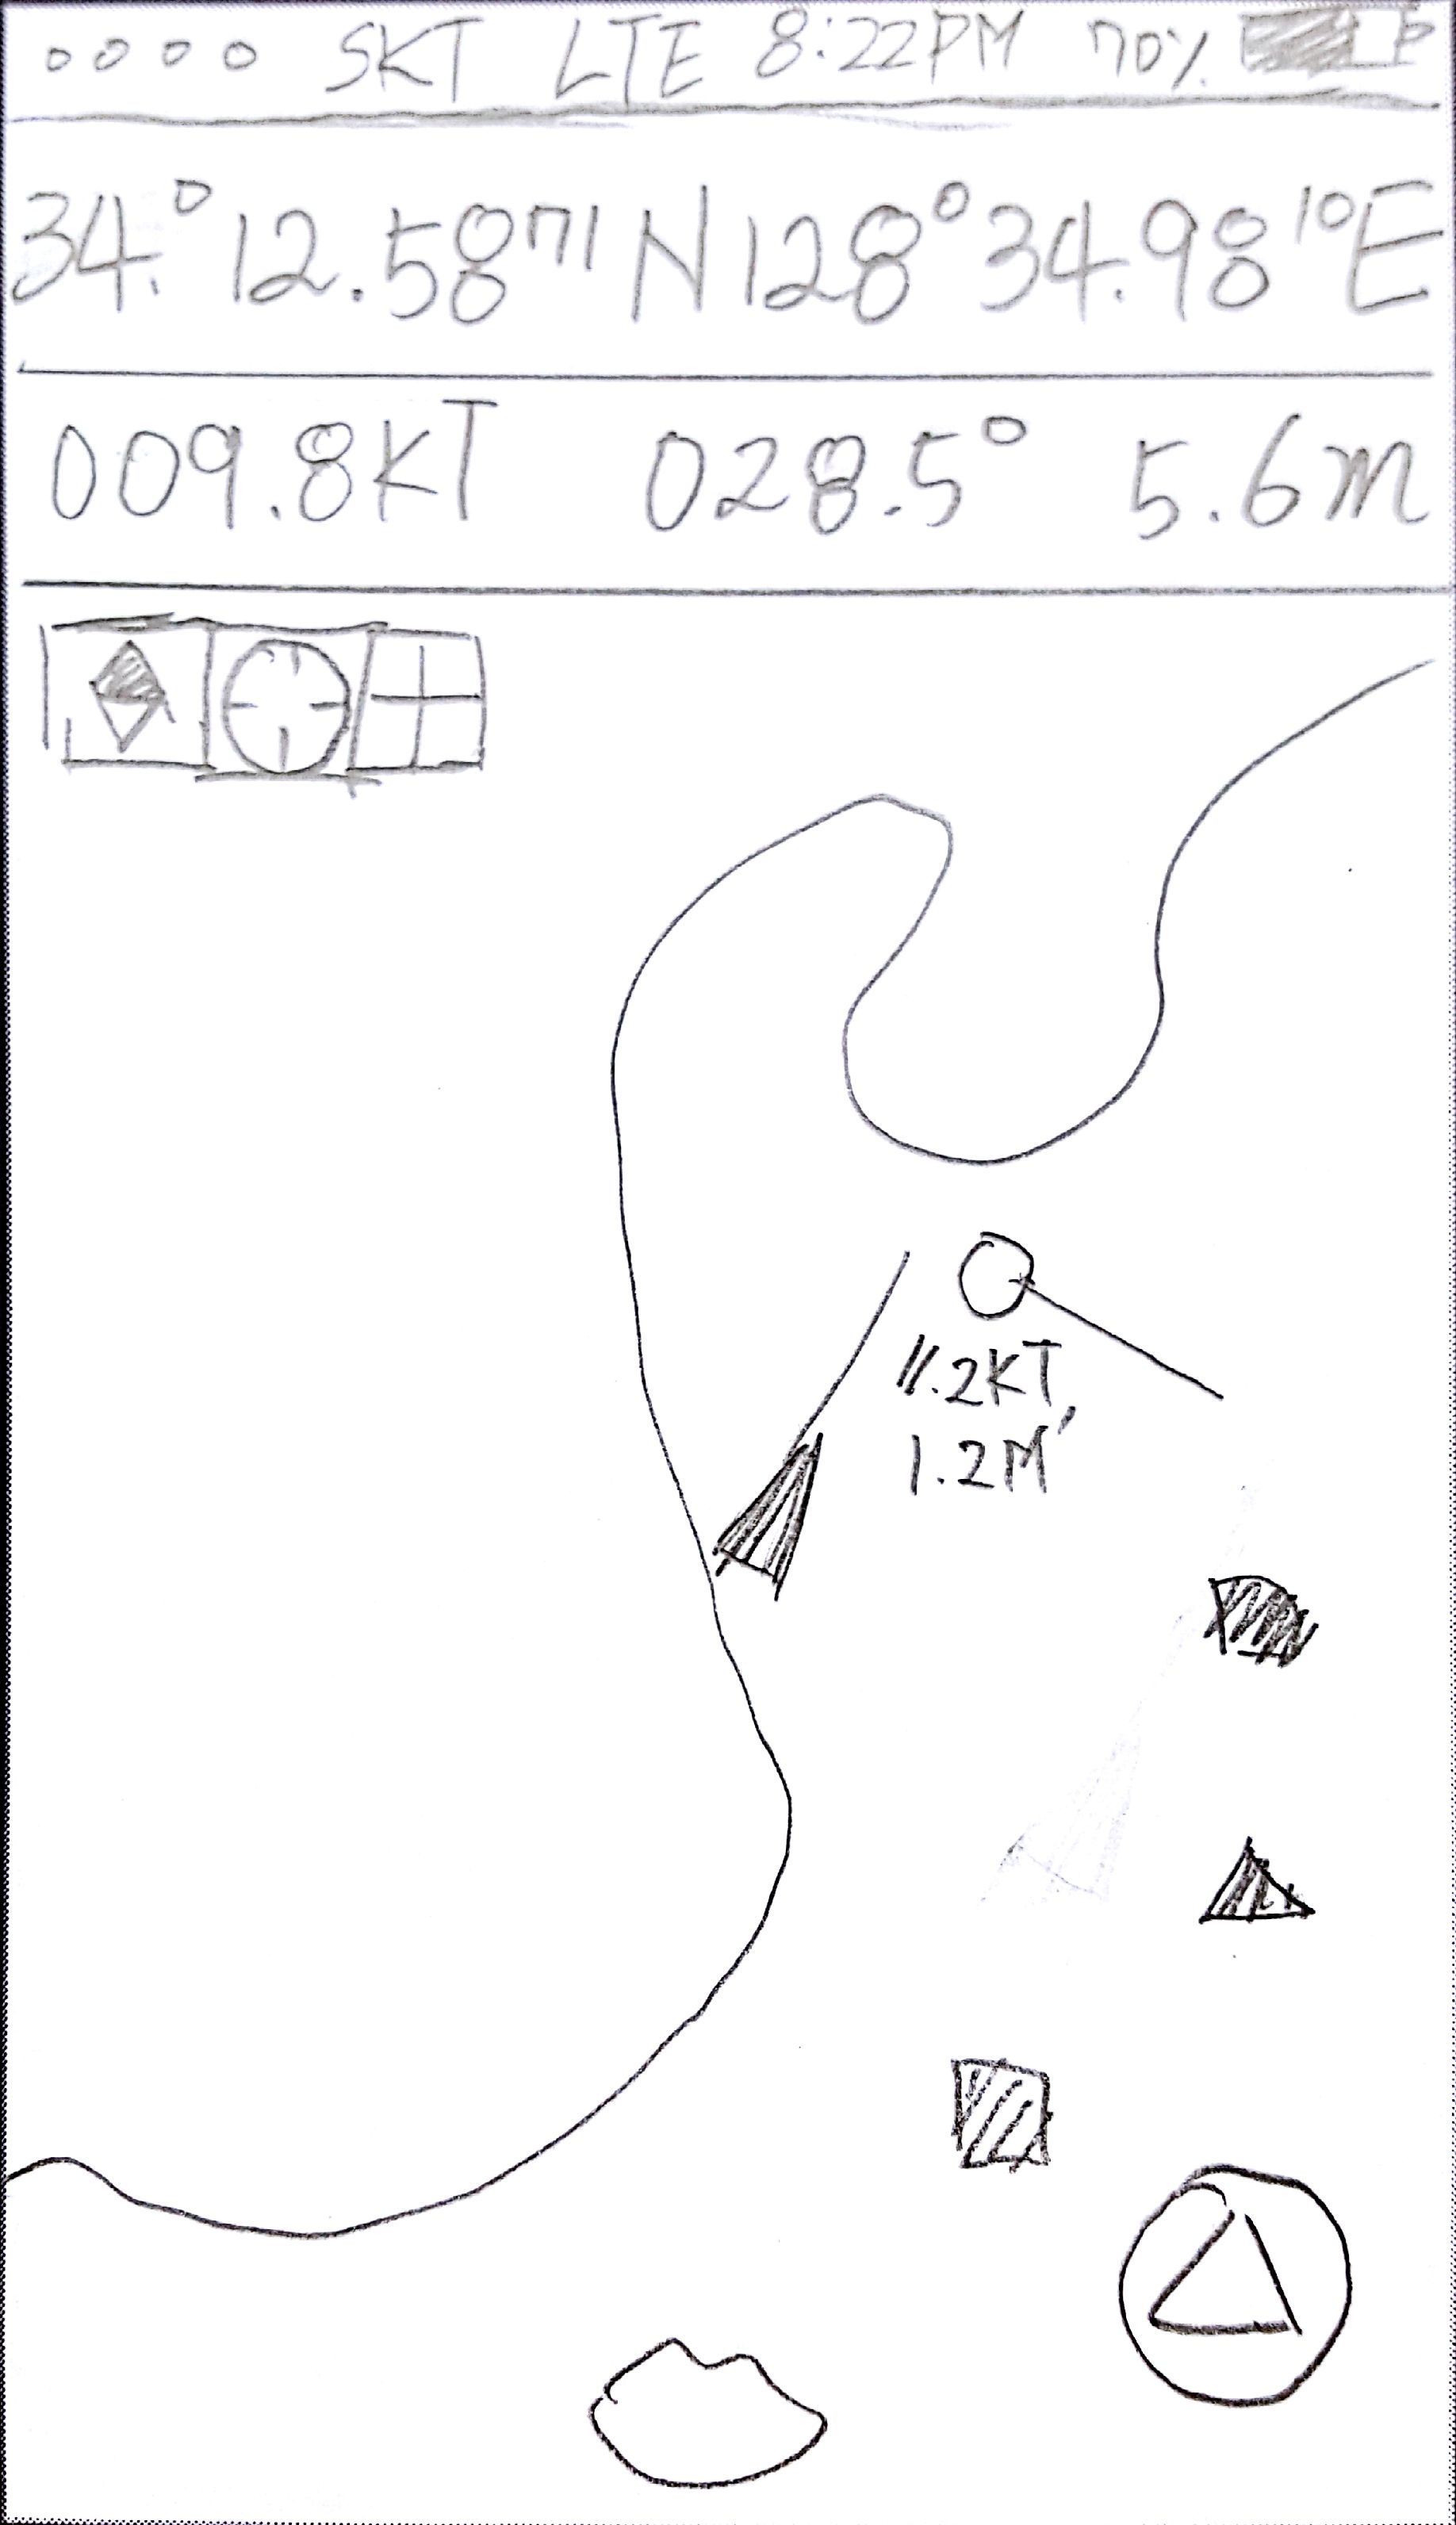 SKT LTE 8:22PM 70%
34.°12.5871N 128°34.9810E
009.8KT 028.5° 5.6m
11.2KT,
1.2M